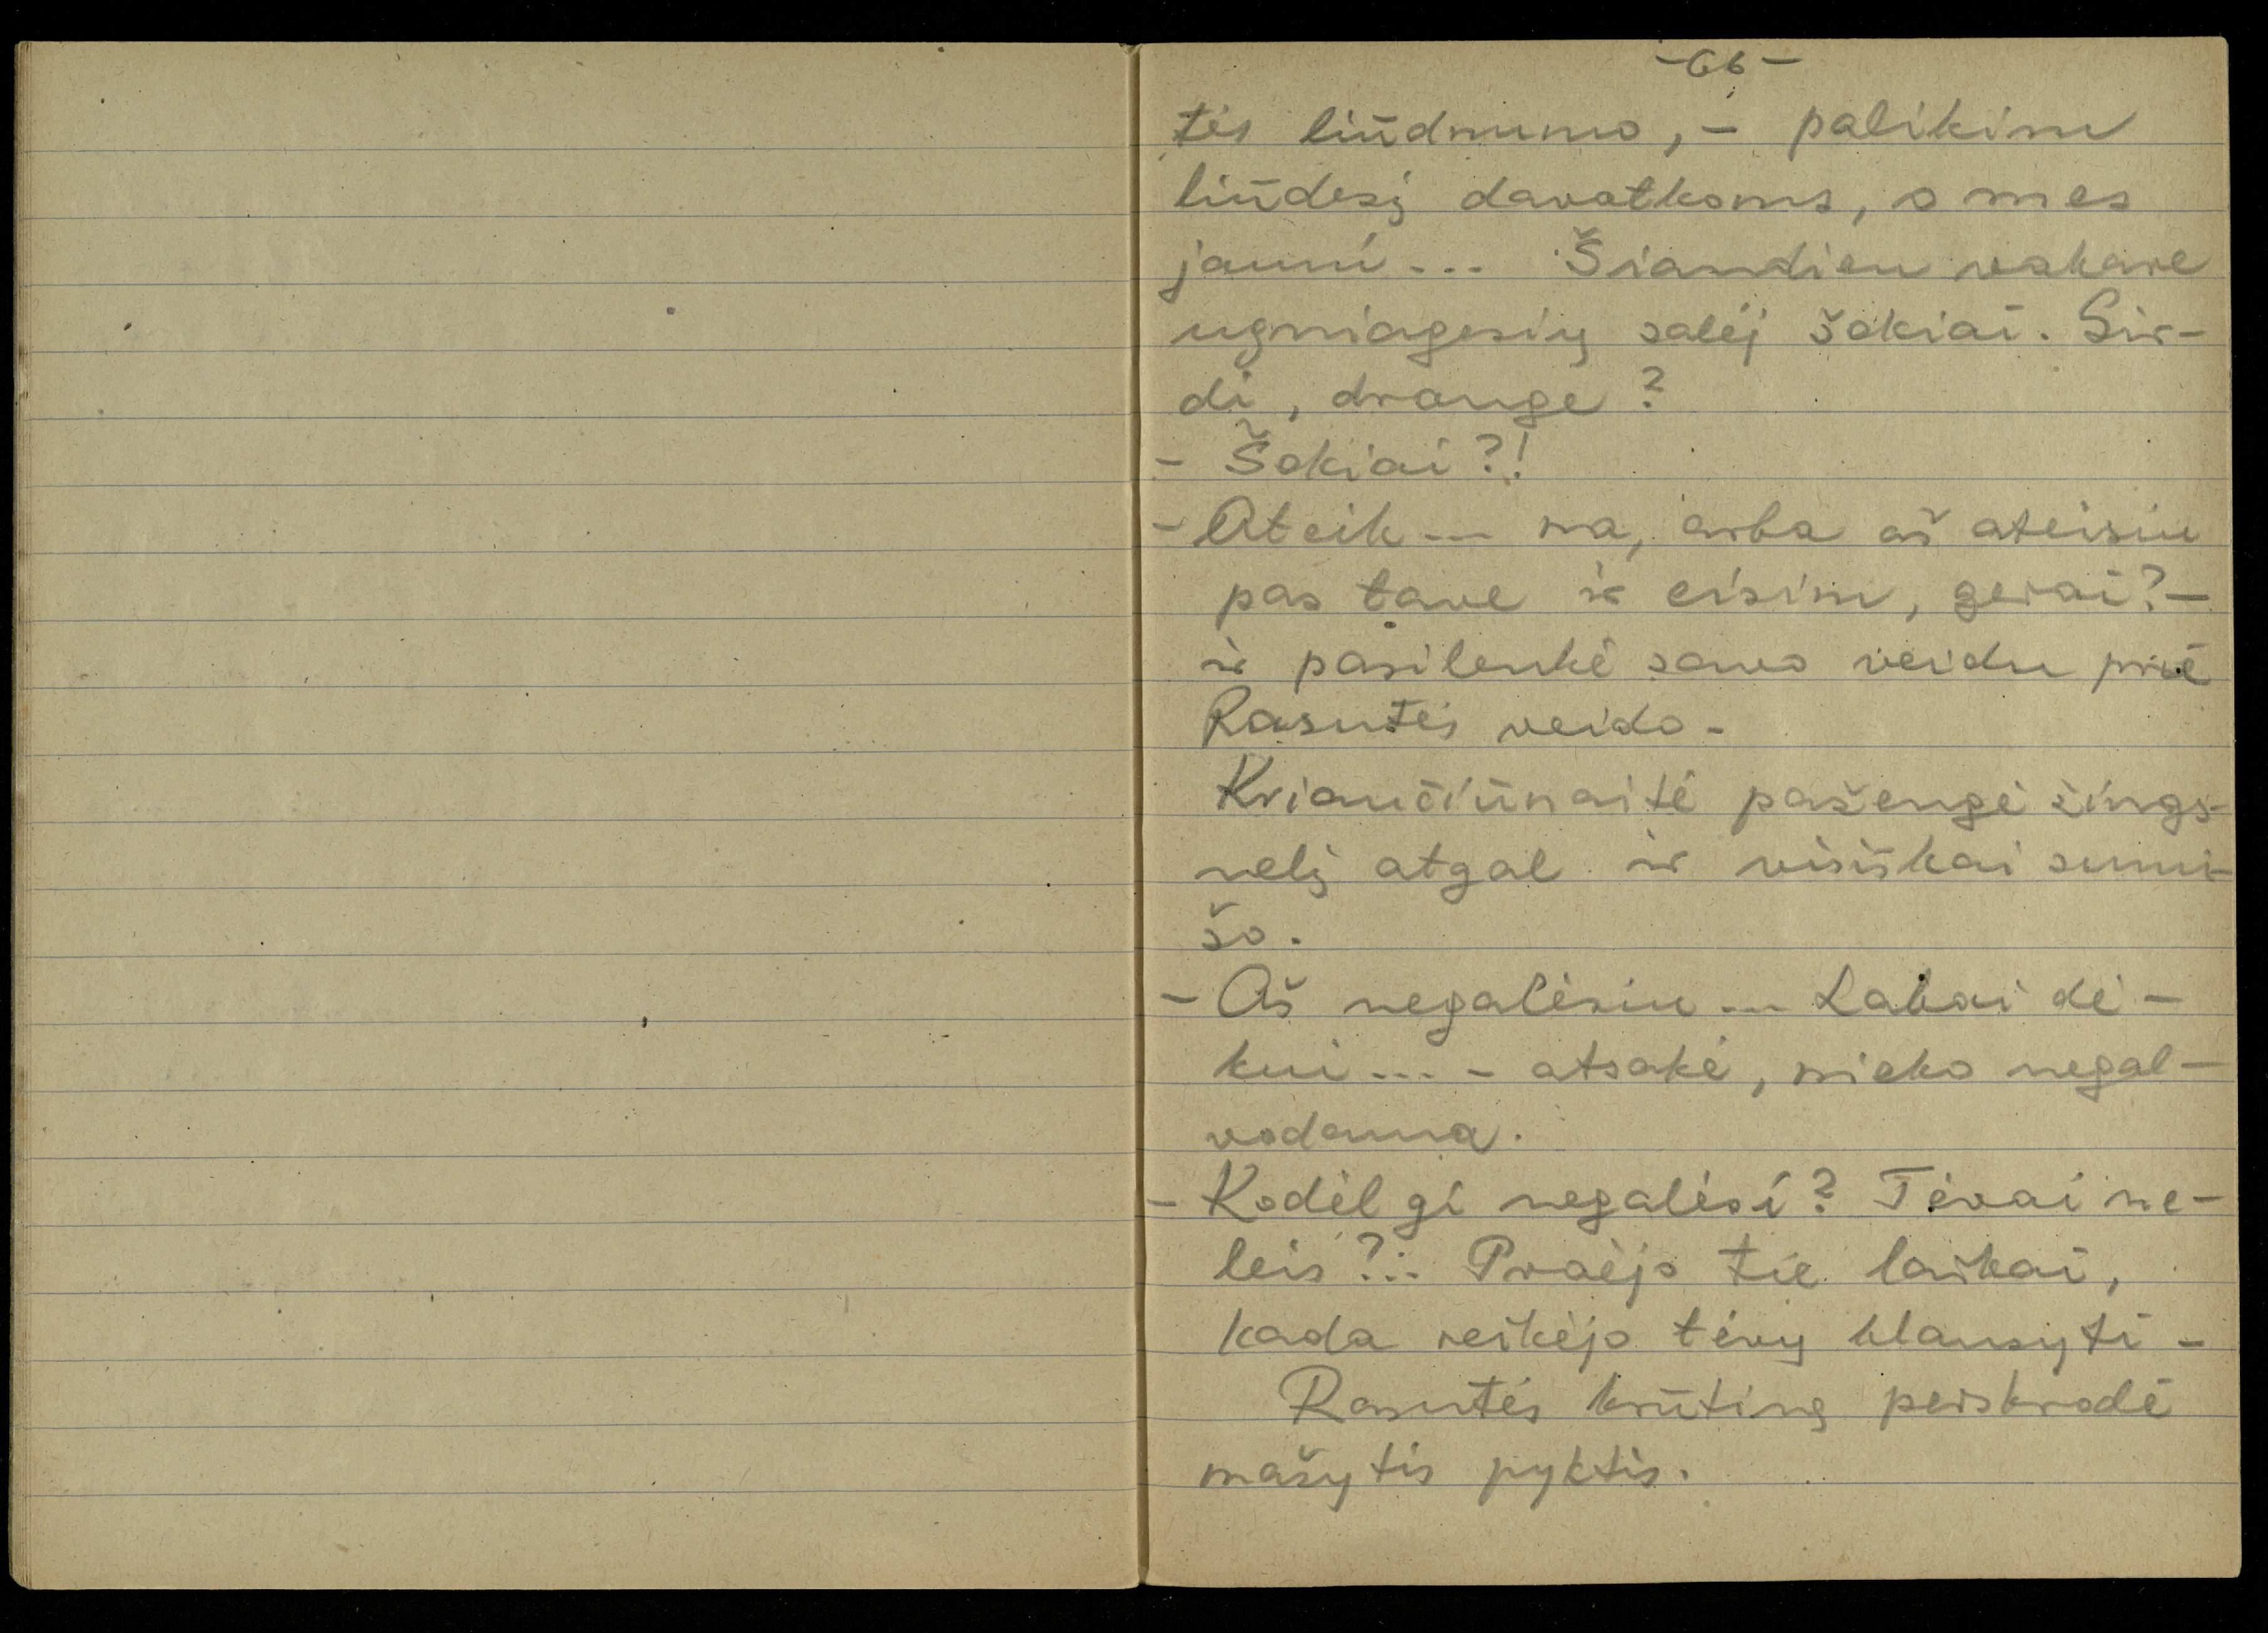 -66-
tės liūdnumo, - palikim
liūdesį davatkoms, o mes
jauni... Šiandien vakare
ugniagesių salėj šokiai. Gir-
di, drauge?
- Šokiai?!
- Ateik... na, arba aš ateisiu
pas tave ir eisim, gerai? -
ir pasilenkė savo veidu prie
Rasutės veido.
Kriaučiūnaitė pažengė žings-
nelį atgal ir visiškai sumi-
šo.
- Aš negalėsiu... Labai dė-
kui... - atsakė, nieko negal-
vodama.
- Kodėl gi negalėsi? Tėvai ne-
leis?.. Praėjo tie laikai,
kada reikėjo tėvų klausyti -
Rasutės krūtinę perskrodė
mažytis pyktis.